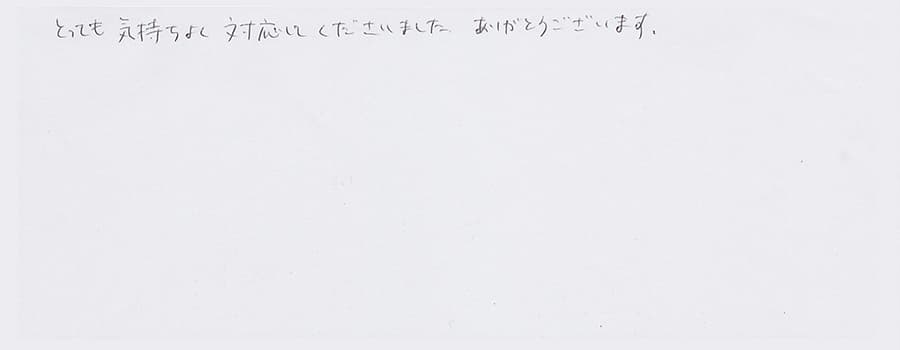 とっても 気持ちよく 対応して くださいました ありがとうございます.